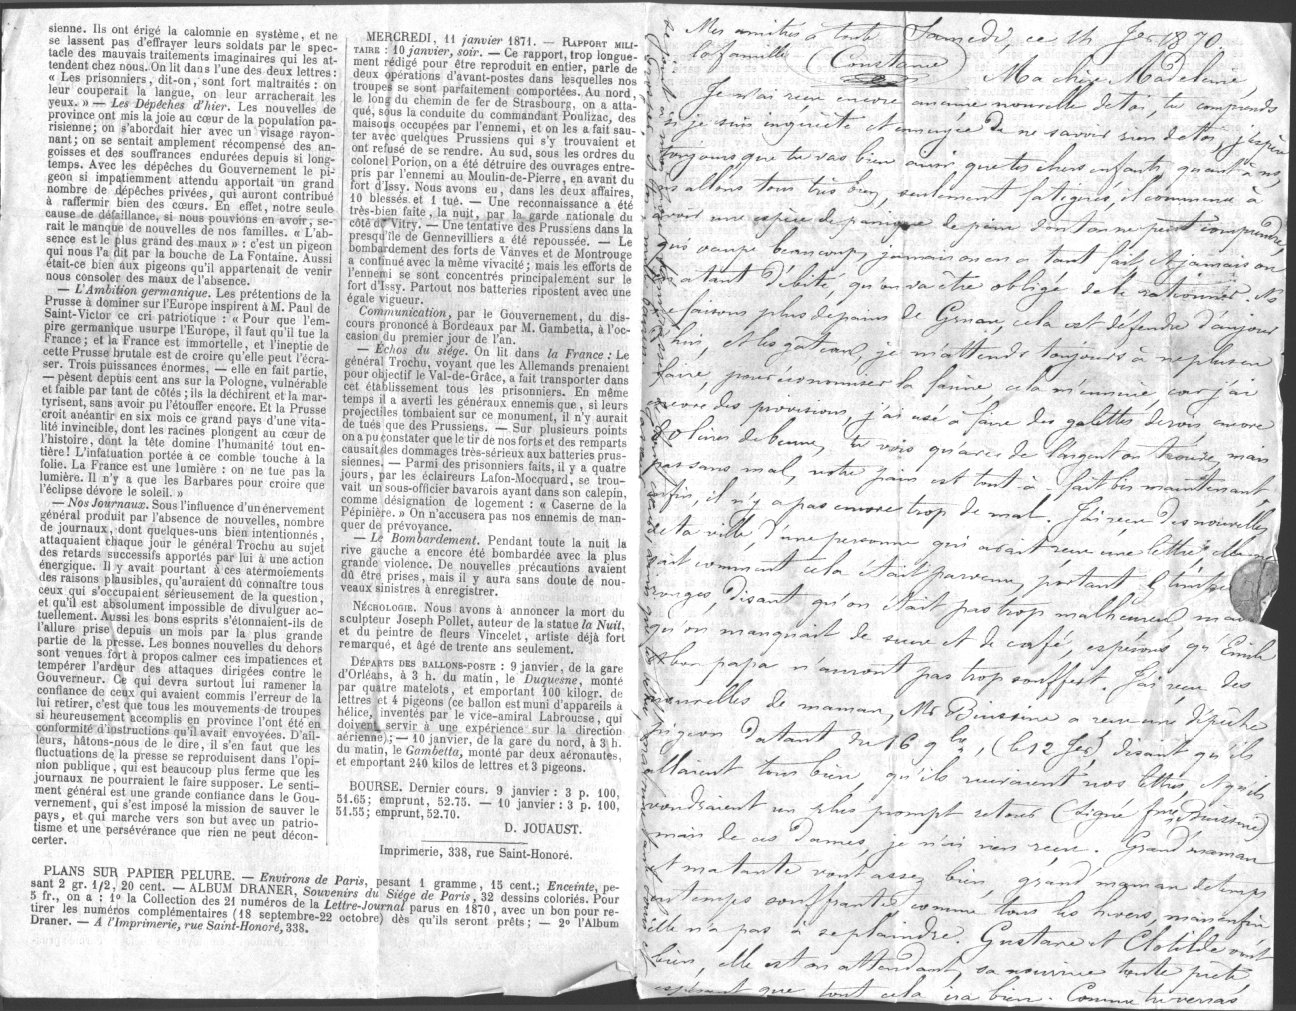 sienne. Ils ont érigé la calomnie en système, et ne
se lassent pas d'effrayer leurs soldats par le spec-
tacle des mauvais traitements imaginaires qui les at-
tendent chez nous. On lit dans l'une des deux lettres:
« Les prisonniers, dit-on, sont fort maltraités : on
leur couperait la langue, on leur arracherait les
yeux. » — Les Dépêches d'hier. Les nouvelles de
province ont mis la joie au cœur de la population pa-
risienne; on s'abordait hier avec un visage rayon-
nant; on se sentait amplement récompensé des an-
goisses et des souffrances endurées depuis si long-
temps. Avec les dépêches du Gouvernement le pi-
geon si impatiemment attendu apportait un grand
nombre de dépêches privées, qui auront contribué
à raffermir bien des cœurs. En effet, notre seule
cause de défaillance, si nous pouvions en avoir, se-
rait le manque de nouvelles de nos familles. « L'ab-
sence est le plus grand des maux » : c'est un pigeon
qui nous l'a dit par la bouche de La Fontaine. Aussi
était-ce bien aux pigeons qu'il appartenait de venir
nous consoler des maux de l'absence.
— L'Ambition germanique. Les prétentions de la
Prusse à dominer sur l'Europe inspirent à M. Paul de
Saint-Victor ce cri patriotique : « Pour que l'em-
pire germanique usurpe l'Europe, il faut qu'il tue la
France; et la France est immortelle, et l'ineptie de
cette Prusse brutale est de croire qu'elle peut l'écra-
ser. Trois puissances énormes, — elle en fait partie,
— pèsent depuis cent ans sur la Pologne, vulnérable
et faible par tant de côtés; ils la déchirent et la mar-
tyrisent, sans avoir pu l'étouffer encore. Et la Prusse
croit anéantir en six mois ce grand pays d'une vita-
lité invincible, dont les racines plongent au cœur de
l'histoire, dont la tête domine l'humanité tout en-
tière! L'infatuation portée à ce comble touche à la
folie. La France est une lumière : on ne tue pas la
lumière. Il n'y a que les Barbares pour croire que
l'éclipse dévore le soleil. »
— Nos Journaux. Sous l'influence d'un énervement
général produit par l'absence de nouvelles, nombre
de journaux, dont quelques-uns bien intentionnés,
attaquaient chaque jour le général Trochu au sujet
des retards successifs apportés par lui à une action
énergique. Il y avait pourtant à ces atermoiements
des raisons plausibles, qu'auraient dû connaître tous
ceux qui s'occupaient sérieusement de la question,
et qu'il est absolument impossible de divulguer ac-
tuellement. Aussi les bons esprits s'étonnaient-ils de
l'allure prise depuis un mois par la plus grande
partie de la presse. Les bonnes nouvelles du dehors
sont venues fort à propos calmer ces impatiences et
tempérer l'ardeur des attaques dirigées contre le
Gouverneur. Ce qui devra surtout lui ramener la
confiance de ceux qui avaient commis l'erreur de la
lui retirer, c'est que tous les mouvements de troupes
si heureusement accomplis en province l'ont été en
conformité d'instructions qu'il avait envoyées. D'ail-
leurs, hâtons-nous de le dire, il s'en faut que les
fluctuations de la presse se reproduisent dans l'opi-
nion publique, qui est beaucoup plus ferme que les
journaux ne pourraient le faire supposer. Le senti-
ment général est une grande confiance dans le Gou-
vernement, qui s'est imposé la mission de sauver le
pays, et qui marche vers son but avec un patrio-
tisme et une persévérance que rien ne peut décon-
certer.
MERCREDI, 11 janvier 1871. — RAPPORT MILI-
TAIRE : 10 janvier, soir. — Ce rapport, trop longue-
ment rédigé pour être reproduit en entier, parle de
deux opérations d'avant-postes dans lesquelles nos
troupes se sont parfaitement comportées. Au nord,
le long du chemin de fer de Strasbourg, on a atta-
qué, sous la conduite du commandant Poulizac, des
maisons occupées par l'ennemi, et on les a fait sau-
ter avec quelques Prussiens qui s'y trouvaient et
ont refusé de se rendre. Au sud, sous les ordres du
colonel Porion, on a été détruire des ouvrages entre-
pris par l'ennemi au Moulin-de-Pierre, en avant du
fort d'Issy. Nous avons eu, dans les deux affaires,
10 blessés et 1 tué. — Une reconnaissance a été
très-bien faite, la nuit, par la garde nationale du
côté de Vitry. — Une tentative des Prussiens dans la
presqu'île de Gennevilliers a été repoussée. — Le
bombardement des forts de Vanves et de Montrouge
a continué avec la même vivacité; mais les efforts de
l'ennemi se sont concentrés principalement sur le
fort d'Issy. Partout nos batteries ripostent avec une
égale vigueur.
Communication, par le Gouvernement, du dis-
cours prononcé à Bordeaux par M. Gambetta, à l'oc-
casion du premier jour de l'an.
— Échos du siége. On lit dans la France : Le
général Trochu, voyant que les Allemands prenaient
pour objectif le Val-de-Grâce, a fait transporter dans
cet établissement tous les prisonniers. En même
temps il a averti les généraux ennemis que, si leurs
projectiles tombaient sur ce monument, il n'y aurait
de tués que des Prussiens. — Sur plusieurs points
on a pu constater que le tir de nos forts et des remparts
causait des dommages très-sérieux aux batteries prus-
siennes. — Parmi des prisonniers faits, il y a quatre
jours, par les éclaireurs Lafon-Mocquard, se trou-
vait un sous-officier bavarois ayant dans son calepin,
comme désignation de logement : « Caserne de la
Pépinière. » On n'accusera pas nos ennemis de man-
quer de prévoyance.
— Le Bombardement. Pendant toute la nuit la
rive gauche a encore été bombardée avec la plus
grande violence. De nouvelles précautions avaient
dû être prises, mais il y aura sans doute de nou-
veaux sinistres à enregistrer.
NÉCROLOGIE. Nous avons à annoncer la mort du
sculpteur Joseph Pollet, auteur de la statue la Nuit,
et du peintre de fleurs Vincelet, artiste déjà fort
remarqué, et âgé de trente ans seulement.
DÉPARTS DES BALLONS-POSTE : 9 janvier, de la gare
d'Orléans, à 3 h. du matin, le Duquesne, monté
par quatre matelots, et emportant 100 kilogr. de
lettres et 4 pigeons (ce ballon est muni d'appareils à
hélice, inventés par le vice-amiral Labrousse, qui
doivent servir à une expérience sur la direction
aérienne); — 10 janvier, de la gare du nord, à 3 h.
du matin, le Gambetta, monté par deux aéronautes,
et emportant 240 kilos de lettres et 3 pigeons.
BOURSE. Dernier cours. 9 janvier : 3 p. 100,
51.65; emprunt, 52.75. — 10 janvier: 3 p. 100,
51.55; emprunt, 52.70.
D. JOUAUST.
Imprimerie, 338, rue Saint-Honoré.
PLANS SUR PAPIER PELURE. — Environs de Paris, pesant 1 gramme, 15 cent.; Enceinte, pe-
sant 2 gr. 1/2, 20 cent. — ALBUM DRANER, Souvenirs du Siége de Paris, 32 dessins coloriés. Pour
5 fr., on a : 1º la Collection des 21 numéros de la Lettre-Journal parus en 1870, avec un bon pour re-
tirer les numéros complémentaires (18 septembre-22 octobre) dès qu'ils seront prêts; — 2º l'Album
Draner. — A l'Imprimerie, rue Saint-Honoré, 338.
Mes amitiés à toute
la famille (Constance)
Samedi, ce 14 Jer 1870
Ma chère Madeleine
Je n'ai reçu encore aucune nouvelle de toi, tu comprends
je suis inquiète et ennuyée de ne savoir rien de toi, j'espère
toujours que tu vas bien ainsi que tes chers enfants, quant à
allons tous très bien, seulement fatigués, il commence à
avoir une espèce de panique de peur dont on ne peut comprendre
qui occupe beaucoup, jamais on en a tant fait et jamais on
autant débité, qu'on va être obligé de le rationner.
faisons plus de pains de Gruau, cela est défendu d'aujour
hui, et les gateaux, je m'attends toujours à ne plus en
faire, pour économiser la farine, cela m'ennuie car j'ai
encore des provisions, j'ai usé à faire des galettes des rois encore
livres de beurre, tu vois qu'avec de l'argent on trouve, mais
pas sans mal, notre pain est tout à fait bis maintenant
enfin, il n'y a pas encore trop de mal. J'ai reçu des nouvelles
de ta ville, d'une personne qui avait reçu une lettre
comment cela était parvenu, portant
rouges disant qu'on était pas trop malheureux, mais
qu'on manquait de sucre et de café, espérons qu'Emile
bon papa n'auront pas trop souffert. J'ai reçu des
nouvelles de maman, Mr Buissine a reçu une dépêche
pigeon datant du 16 9bre, (le 12 Jer) disant qu'ils
allaient tous bien, qu'ils recevaient nos lettres, et qu'ils
voudraient un plus prompt retour
mais de ces dames, je n'ai rien reçu. Grand'maman
et ma tante vont assez bien, grand'maman de temps
en temps souffrante comme tous les hivers, mais enfin
elle n'a pas à se plaindre. Gustave et Clotilde vont
bien, elle est en attendant, sa nourrice toute prête
espérant que tout cela ira bien. Comme tu verras